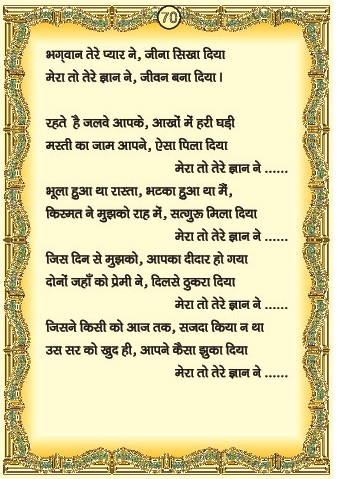 70
भगवान तेरे प्यार ने, जीना सिखा दिया
मेरा तो तेरे ज्ञान ने, जीवन बना दिया।
रहते है जलवे आपके, आखों में हरी घड़ी
मस्ती का जाम आपने, ऐसा पिला दिया
मेरा तो तेरे ज्ञान ने ......
भूला हुआ था रास्ता, भटका हुआ था मैं,
किस्मत ने मुझको राह में, सत्गुरू मिला दिया
मेरा तो तेरे ज्ञान ने ......
जिस दिन से मुझको, आपका दीदार हो गया
दोनों जहाँ को प्रेमी ने, दिलसे ठुकरा दिया
मेरा तो तेरे ज्ञान ने ......
जिसने किसी को आज तक, सजदा किया न था
उस सर को खुद ही, आपने कैसा झुका दिया
मेरा तो तेरे ज्ञान ने ......